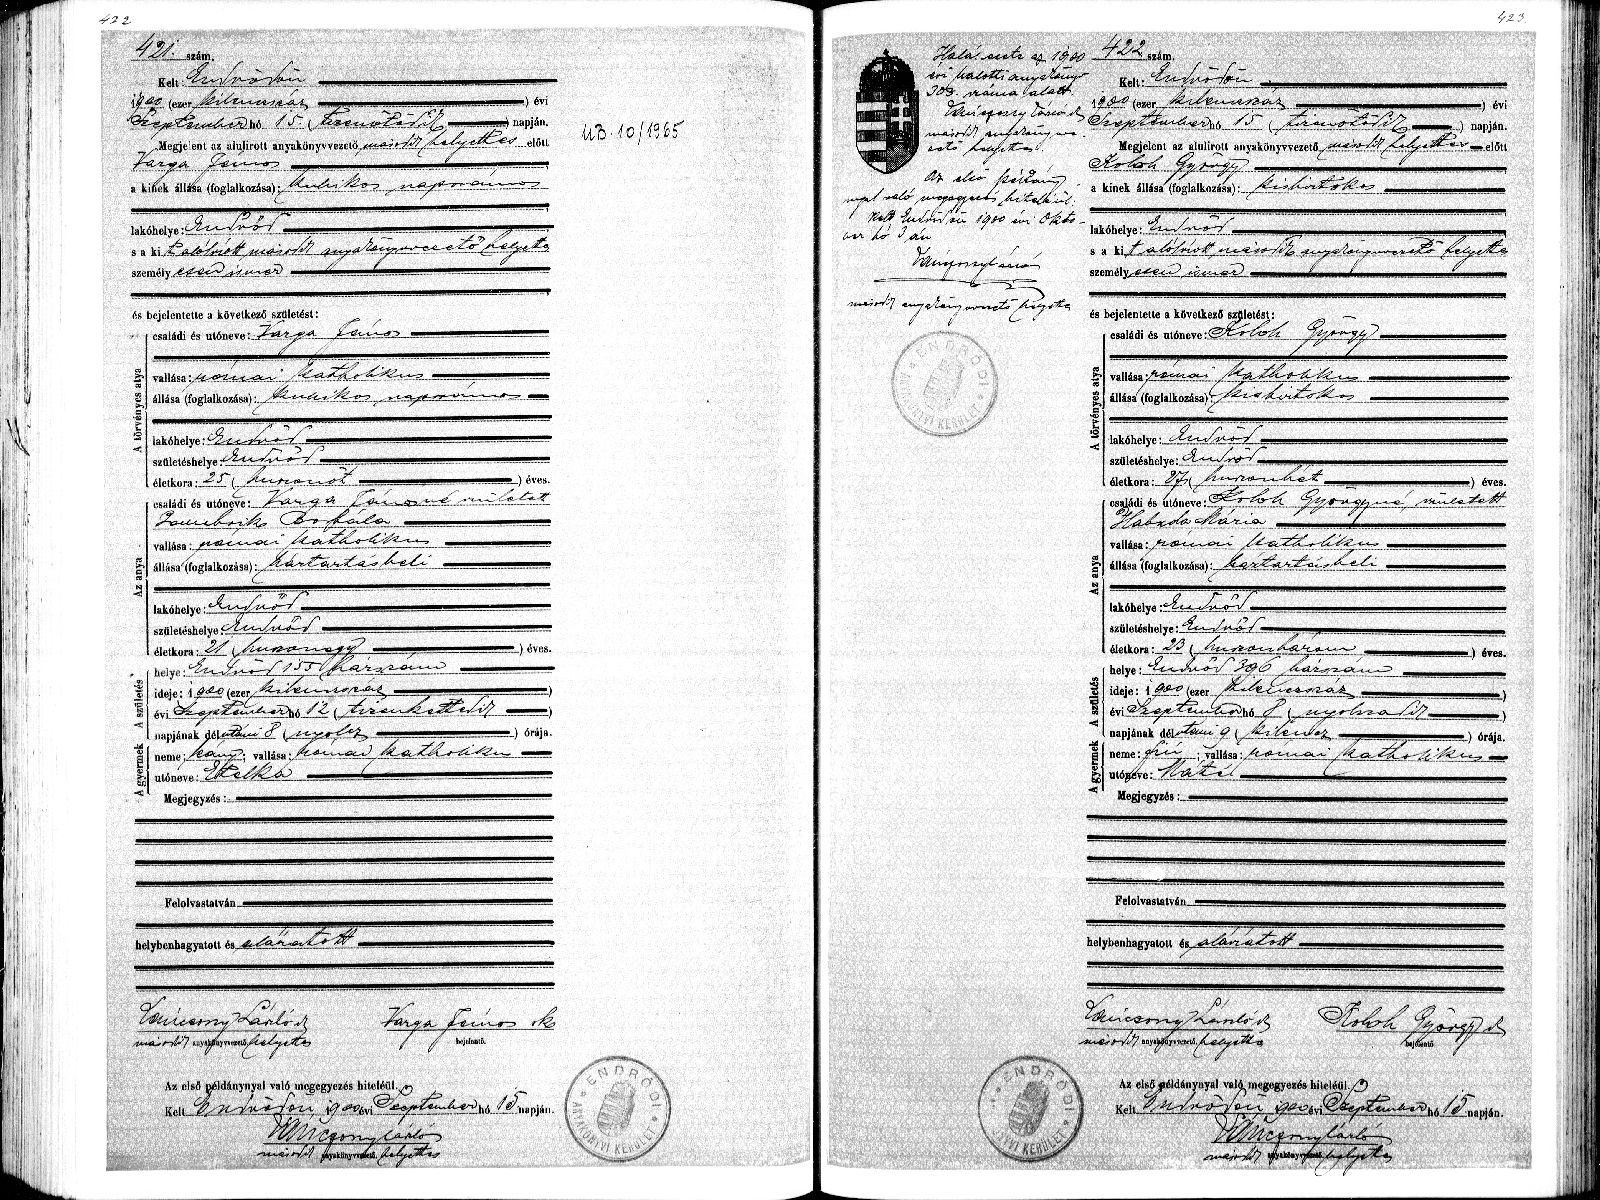 422
421. szám.
Kelt: Endrődön
1900 (ezer kilenczszáz ) évi
Szeptember hó 15. ( tizenötödik ) napján.
Megjelent az alulirott anyakönyvvezető, második helyettes előtt
Varga János
a kinek állása (foglalkozása): kubikos napszámos
lakóhelye: Endrőd
s a ki t alólirott második anyakönyvvezető helyettes
személyesen ismer
és bejelentette a következő születést:
A törvényes atya
családi és utóneve: Varga János
vallása: római katholikus
állása (foglalkozása): kubikos napszámos
lakóhelye: Endrőd
születéshelye: Endrőd
életkora: 25 ( huszonöt ) éves.
Az anya
családi és utóneve: Varga Jánosné született
Borbála
vallása: római katholikus
állása (foglalkozása): háztartásbeli
lakóhelye: Endrőd
születéshelye: Endrőd
életkora: 21 ( huszonegy ) éves.
A születés
helye: Endrőd 155 házszám
ideje: 1900 (ezer kilenczszáz )
évi Szeptember hó 12 ( tizenkettedik )
napjának délutáni 8 ( nyolcz ) órája.
A gyermek
neme: leány; vallása: római katholikus
utóneve: Etelka
Megjegyzés:
Felolvastatván
helybenhagyatott és aláiratott
Vánicsony László
második anyakönyvvezető helyettes
Varga János
bejelentő.
Az első példánynyal való megegyezés hiteléül.
Kelt Endrődön, 1900 évi Szeptember hó 15 napján.
második anyakönyvvezető helyettes
UB. 10/1965
ENDRŐDI ANYAKÖNYVI KERÜLET
423
Halál esete az 1900
évi halotti anyakönyv
303. száma alatt.
második anyakönyvve-
zető helyettes.
Az első példány-
nyal való megegyezés hiteléül.
Kelt Endrődön 1900 évi Októ-
ber hó 3 án
második anyakönyvvezető helyettes
ENDRŐDI ANYAKÖNYVI KERÜLET
422 szám.
Kelt: Endrődön
1900 (ezer kilenczszáz ) évi
Szeptember hó 15 ( tizenötödik ) napján.
Megjelent az alulirott anyakönyvvezető, második helyettes előtt
Koloh György
a kinek állása (foglalkozása): kisbirtokos
lakóhelye: Endrőd
s a ki t alólirott második anyakönyvvezető helyettes
személyesen ismer
és bejelentette a következő születést:
A törvényes atya
családi és utóneve: Koloh György
vallása: római katholikus
állása (foglalkozása): kisbirtokos
lakóhelye: Endrőd
születéshelye: Endrőd
életkora: 27 ( huszonhét ) éves.
Az anya
családi és utóneve: Koloh Györgyné, született
Mária
vallása: római katholikus
állása (foglalkozása): háztartásbeli
lakóhelye: Endrőd
születéshelye: Endrőd
életkora: 23 ( huszonhárom ) éves.
A születés
helye: Endrőd 396 házszám
ideje: 1900 (ezer kilenczszáz )
évi Szeptember hó 8 ( nyolczadik )
napjának délutáni 9 ( kilencz ) órája.
A gyermek
neme: fiú; vallása: római katholikus
utóneve: Máté
Megjegyzés:
Felolvastatván
helybenhagyatott és aláiratott
Vánicsony László
második anyakönyvvezető helyettes
Koloh György
bejelentő
Az első példánynyal való megegyezés hiteléül.
Kelt Endrődön, 1900 évi Szeptember hó 15 napján.
második anyakönyvvezető helyettes
ENDRŐDI ANYAKÖNYVI KERÜLET